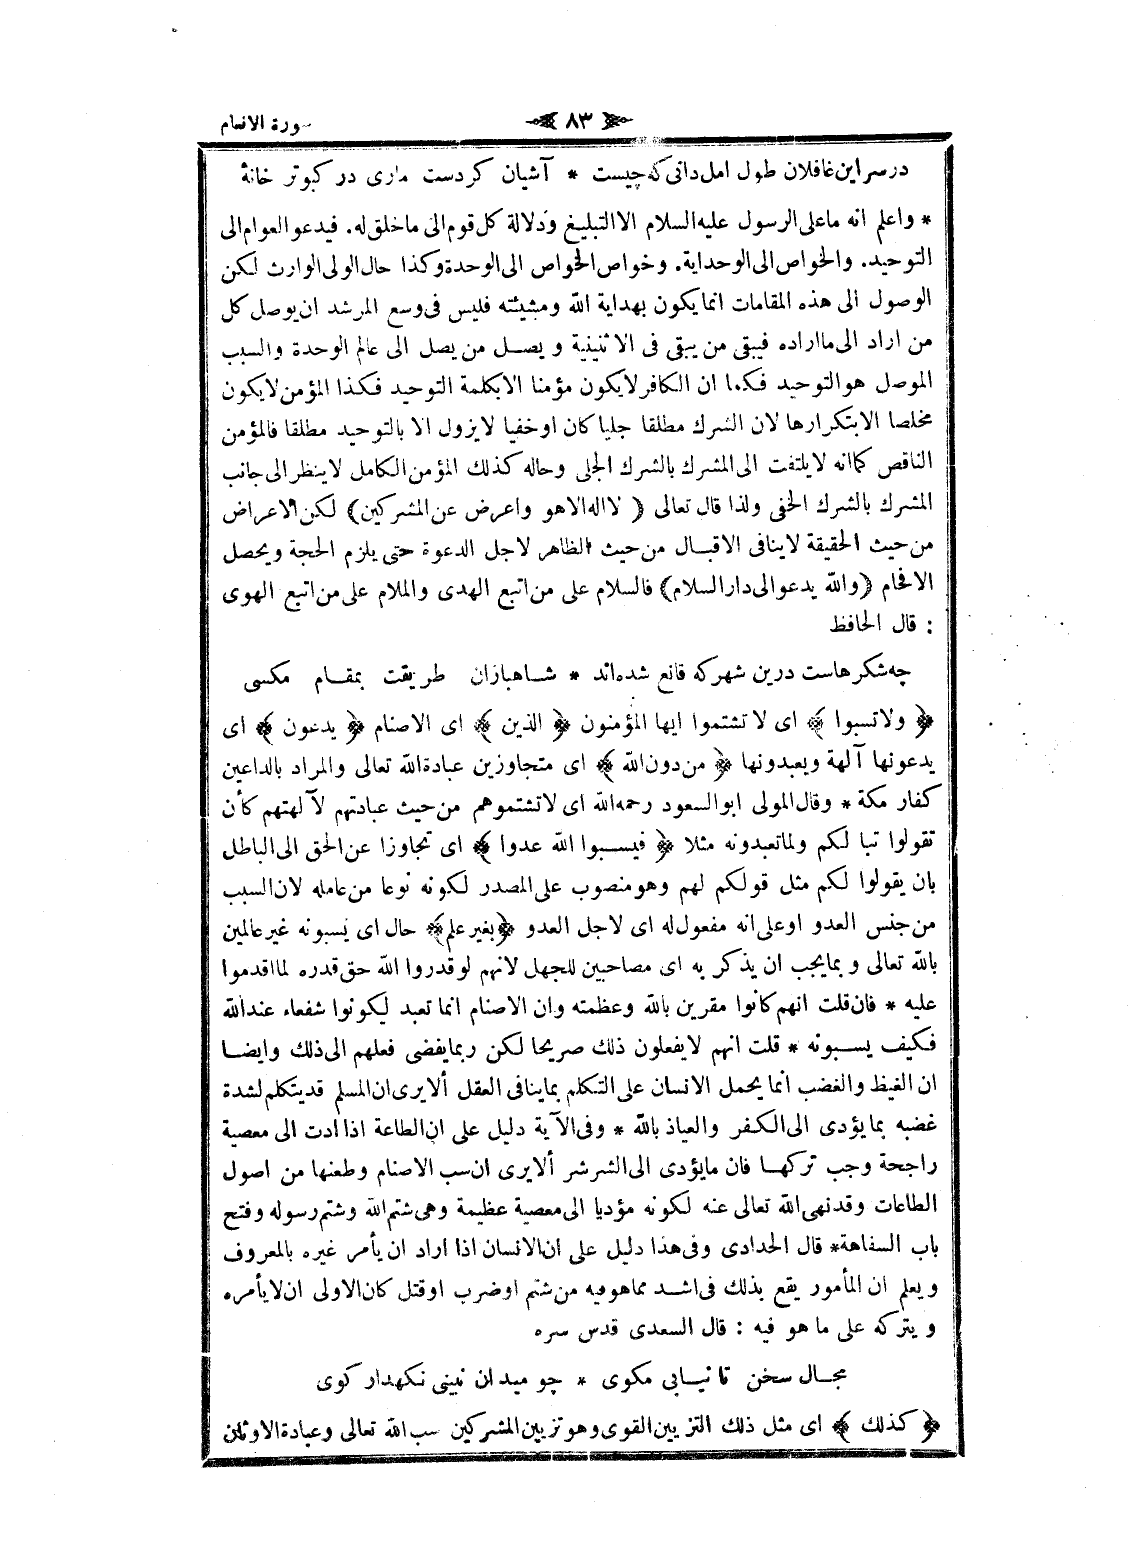 سورة الانعام
﴿ ٨٣ ﴾
درسر اين غافلان طول امل دانى كه چيست * آشيان كردست مارى در كبوتر خانهٔ
* واعلم انه ماعلى الرسول عليه السلام الا التبليغ ودلالة كل قوم الى ما خلق له. فيدعو العوام الى
التوحيد. والخواص الى الوحداية. وخواص الخواص الى الوحدة وكذا حال الولى الوارث لكن
الوصول الى هذه المقامات انما يكون بهداية الله ومشيئته فليس فى وسع المرشد ان يوصل كل
من اراد الى مااراده فيبقى من يبقى فى الاثنينية ويصل من يصل الى عالم الوحدة والسبب
الموصل هو التوحيد فكما ان الكافر لايكون مؤمنا الا بكلمة التوحيد فكذا المؤمن لايكون
مخلصا الا بتكرارها لان الشرك مطلقا جليا كان اوخفيا لايزول الا بالتوحيد مطلقا فالمؤمن
الناقص كما انه لايلتفت الى المشرك بالشرك الجلى وحاله كذلك المؤمن الكامل لاينظر الى جانب
المشرك بالشرك الخفى ولذا قال تعالى ( لااله الاهو واعرض عن المشركين) لكن الاعراض
من حيث الحقيقة لاينافى الاقبال من حيث الظاهر لاجل الدعوة حتى يلزم الحجة ويحصل
الافحام (والله يدعو الى دار السلام) فالسلام على من اتبع الهدى والملام على من اتبع الهوى
: قال الحافظ
چه شكرهاست درين شهركه قانع شده اند * شاهبازان طريقت بمقام مكسى
﴿ ولاتسبوا ﴾ اى لاتشتموا ايها المؤمنون ﴿ الذين ﴾ اى الاصنام ﴿ يدعون ﴾ اى
يدعونها آلهة ويعبدونها ﴿ من دون الله ﴾ اى متجاوزين عبادة الله تعالى والمراد بالداعين
كفار مكة * وقال المولى ابو السعود رحمه الله اى لاتشتموهم من حيث عبادتهم لآلهتهم كأن
تقولوا تبا لكم ولماتعبدونه مثلا ﴿ فيسبوا الله عدوا ﴾ اى تجاوزا عن الحق الى الباطل
بان يقولوا لكم مثل قولكم لهم وهو منصوب على المصدر لكونه نوعا من عامله لان السبب
من جنس العدو اوعلى انه مفعول له اى لاجل العدو ﴿بغير علم﴾ حال اى يسبونه غير عالمين
بالله تعالى وبمايجب ان يذكر به اى مصاحبين للجهل لانهم لوقدروا الله حق قدره لما اقدموا
عليه * فان قلت انهم كانوا مقرين بالله وعظمته وان الاصنام انما تعبد ليكونوا شفعاء عندالله
فكيف يسبونه * قلت انهم لايفعلون ذلك صريحا لكن ربمايفضى فعلهم الى ذلك وايضا
ان الغيظ والغضب انما يحمل الانسان على التكلم بماينافى العقل ألايرى ان المسلم قديتكلم لشدة
غضبه بمايؤدى الى الكفر والعياذ بالله * وفى الآية دليل على ان الطاعة اذا ادت الى معصية
راجحة وجب تركها فان مايؤدى الى الشر شر ألايرى ان سب الاصنام وطعنها من اصول
الطاعات وقدنهى الله تعالى عنه لكونه مؤديا الى معصية عظيمة وهى شتم الله وشتم رسوله وفتح
باب السفاهة* قال الحدادى وفى هذا دليل على ان الانسان اذا اراد ان يأمر غيره بالمعروف
ويعلم ان المأمور يقع بذلك فى اشد مماهوفيه من شتم اوضرب اوقتل كان الاولى ان لايأمره
ويتركه على ما هو فيه : قال السعدى قدس سره
مجال سخن تا نيابى مكوى * چو ميدان نبينى نكهدار كوى
﴿ كذلك ﴾ اى مثل ذلك التزيين القوى وهو تزيين المشركين سب الله تعالى وعبادة الاوثان